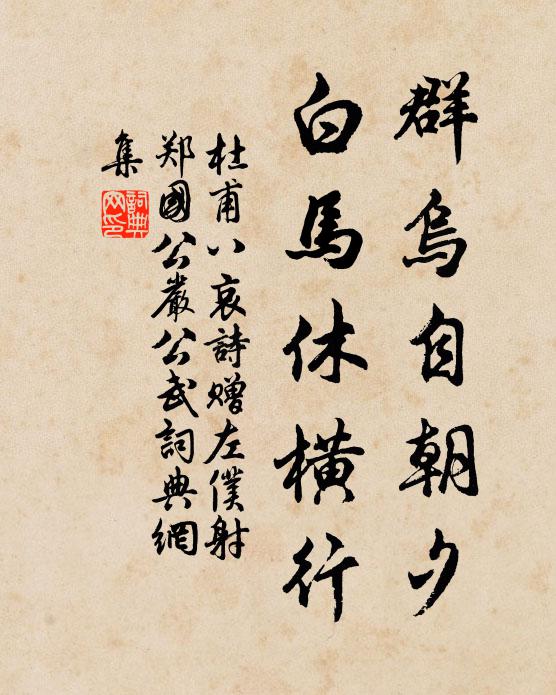 群烏自朝夕
白馬休橫行
杜甫八哀詩贈左僕射
郑國公嚴公武詞典網
集
詞典
网印